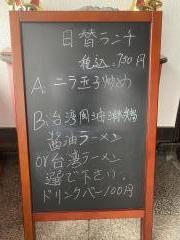 日替ランチ
税込 730円
A: ニラ玉子炒め
B: 台湾
醤油ラーメン
or台湾ラーメン
選で下さい。
ドリンクバー100円